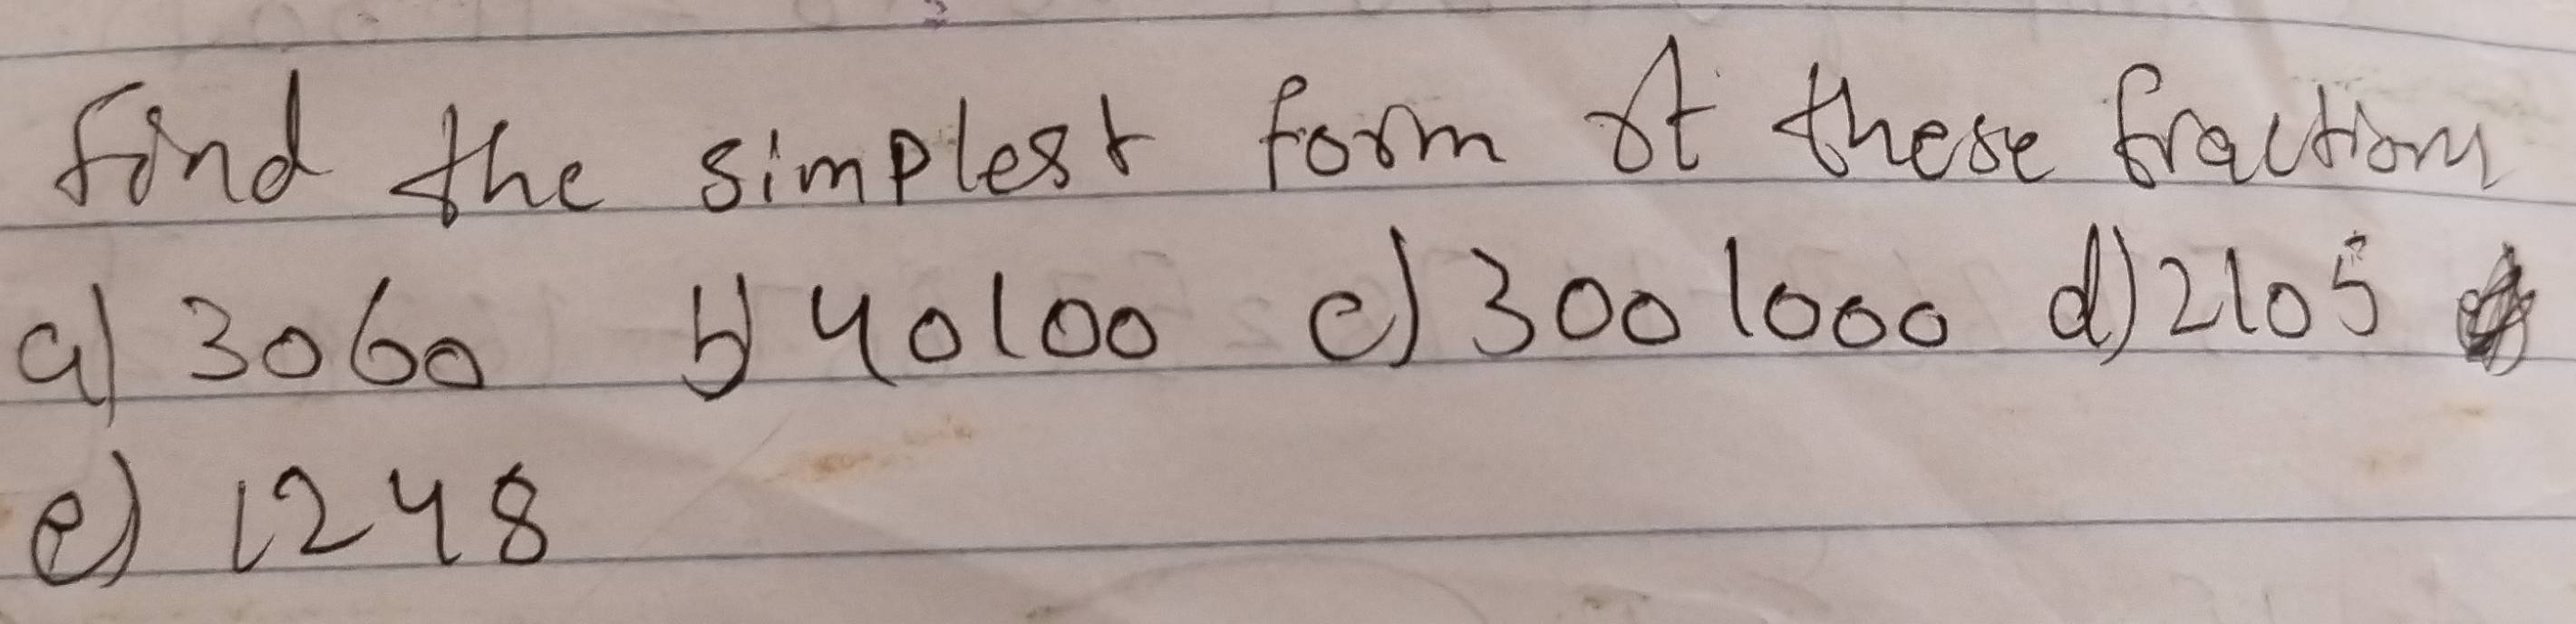 Find the simplest form of these fraction
a) 3060 b) 40100 c) 300 1000 d) 2105
e) 1248